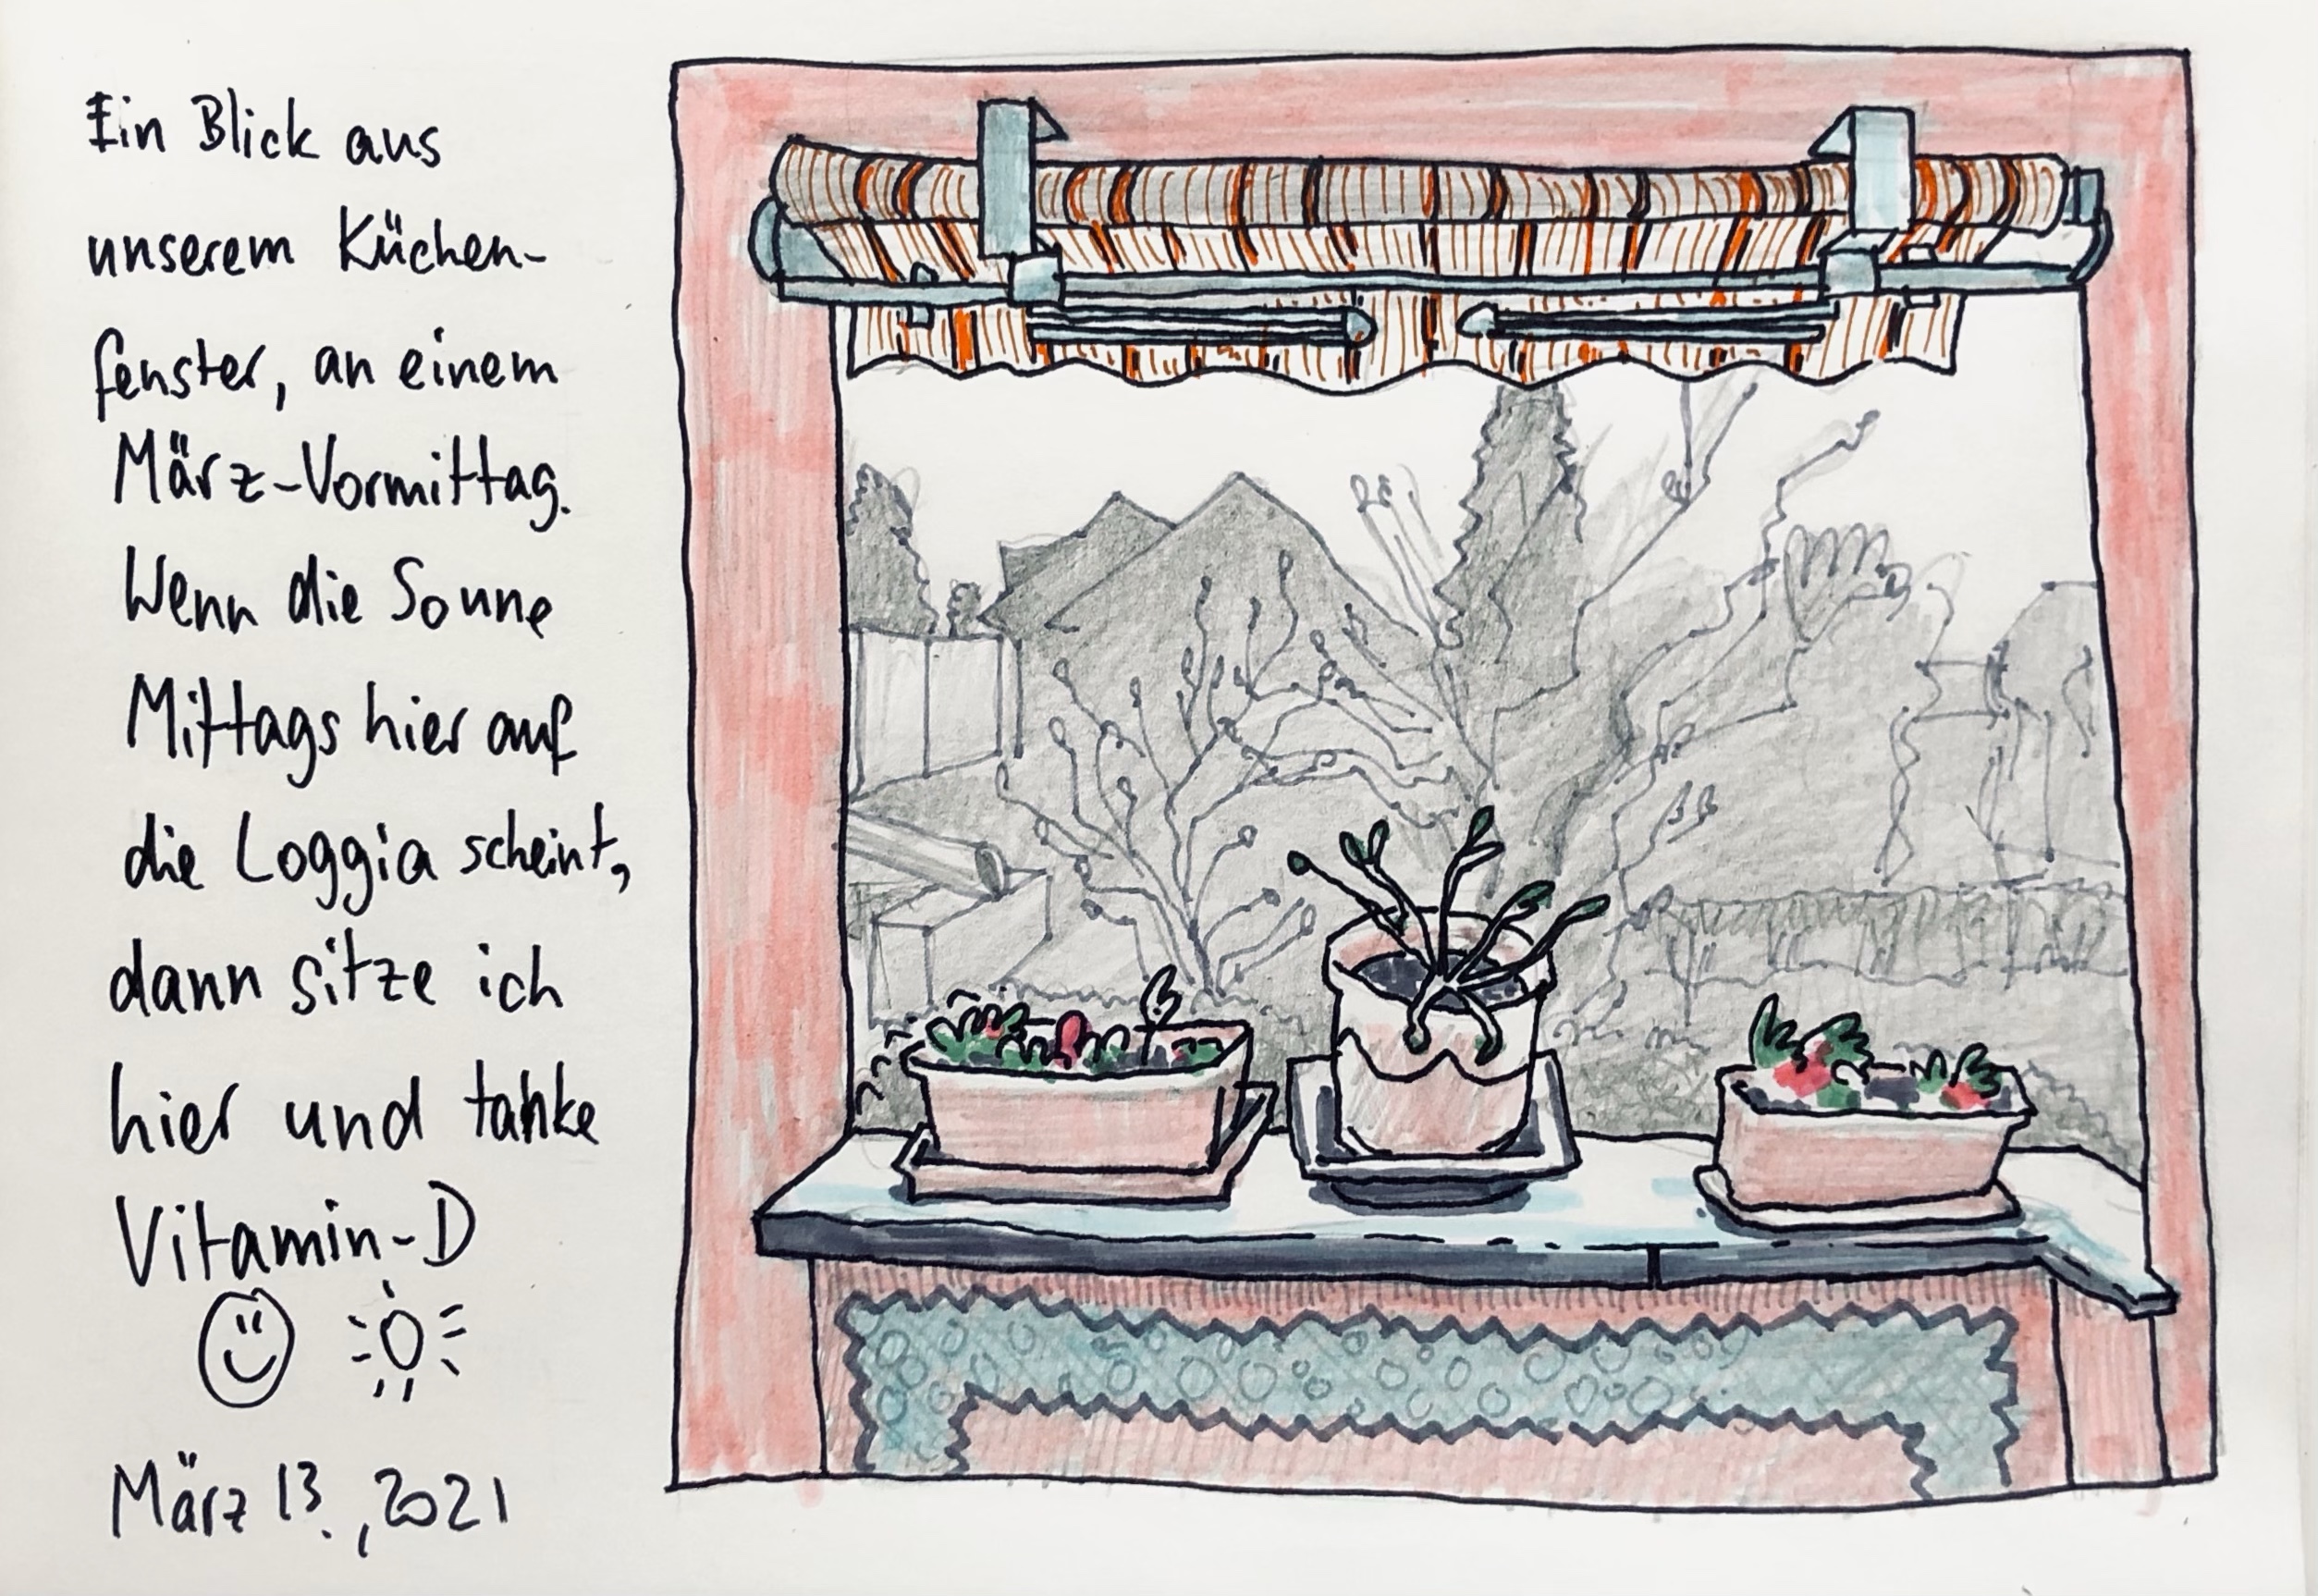 Ein Blick aus
unserem Küchen-
fenster, an einem
März-Vormittag.
Wenn die Sonne
Mittags hier auf
die Loggia scheint,
dann sitze ich
hier und tanke
Vitamin-D
März 13., 2021